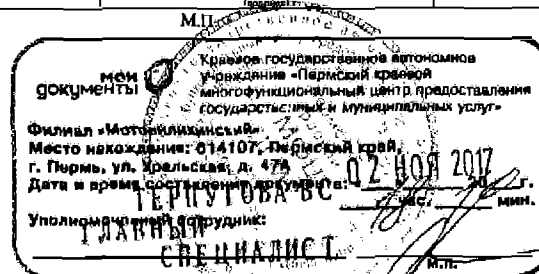 М.П.
мои документы
Краевое государственное автономное
учреждение «Пермский краевой
многофункциональный центр предоставления
государственных и муниципальных услуг»
Филиал «Мотовилихинский»
Место нахождения: 614107, Пермский край,
г. Пермь, ул. Уральская, д. 47А
Дата и время составления документа: 02 НОЯ 2017 г.
ТЕРПУГОВА ВС час. мин.
Уполномоченный сотрудник:
ГЛАВНЫЙ
СПЕЦИАЛИСТ
М.П.